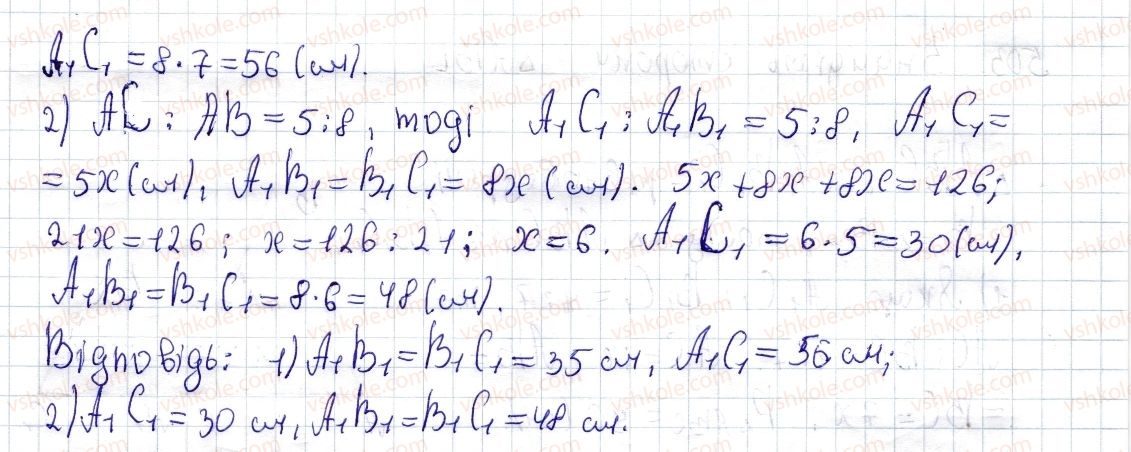 A₁C₁ = 8·7 = 56 (см).
2) AC : AB = 5:8, тоді A₁C₁ : A₁B₁ = 5:8, A₁C₁ =
= 5x (см), A₁B₁ = B₁C₁ = 8x (см). 5x + 8x + 8x = 126;
21x = 126; x = 126 : 21; x = 6. A₁C₁ = 6·5 = 30 (см),
A₁B₁ = B₁C₁ = 8·6 = 48 (см).
Відповідь: 1) A₁B₁ = B₁C₁ = 35 см, A₁C₁ = 56 см;
2) A₁C₁ = 30 см, A₁B₁ = B₁C₁ = 48 см.